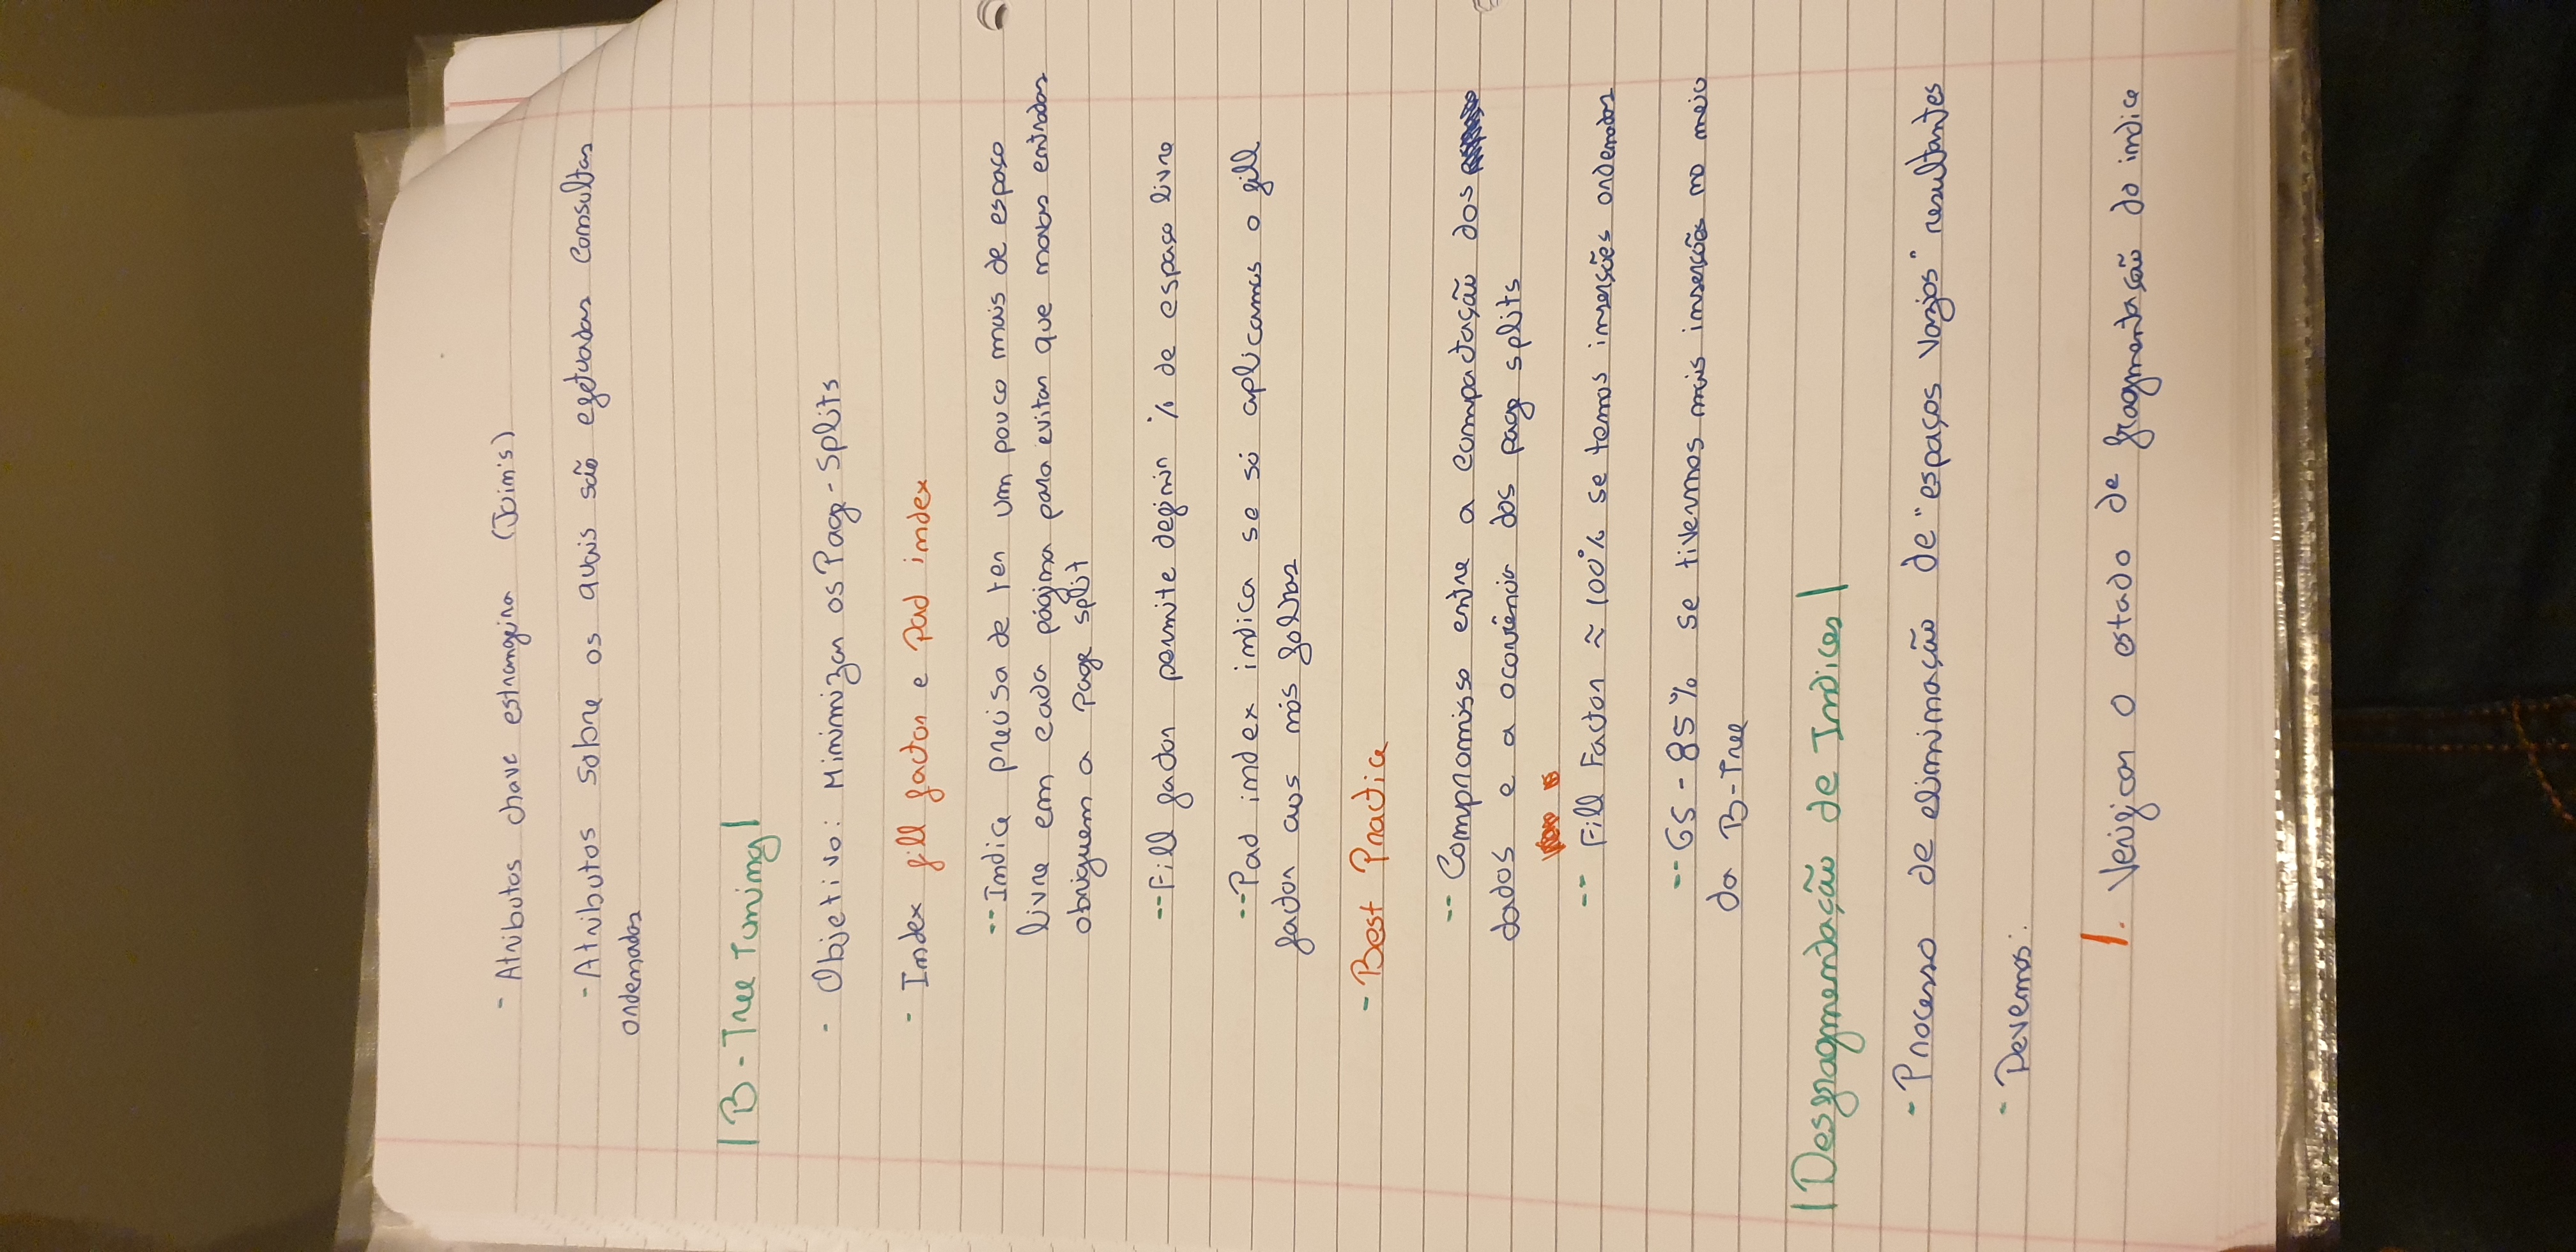 - Atributos chave estrangeira (Join's)
- Atributos sobre os quais são efetuadas consultas
ordenadas
| B - Tree Tuning |
- Objetivo: Minimizar os Page - Splits
- Index fill factor e Pad index
-- Indice precisa de ter um pouco mais de espaço
livre em cada página para evitar que novas entradas
obriguem a page split
-- Fill factor permite definir % de espaço livre
-- Pad index indica se só aplicamos o fill
factor aos nós folhas
- Best Practice
-- Compromisso entre a compactação dos
dados e a ocorrência dos page splits
-- Fill Factor ≈ 100% se temos inserções ordenadas
-- 65 - 85% se tivermos mais inserções no meio
da B-Tree
| Desfragmentação de Indices |
- Processo de eliminação de "espaços vazios" resultantes
- Devemos:
1. Verificar o estado de fragmentação do indice